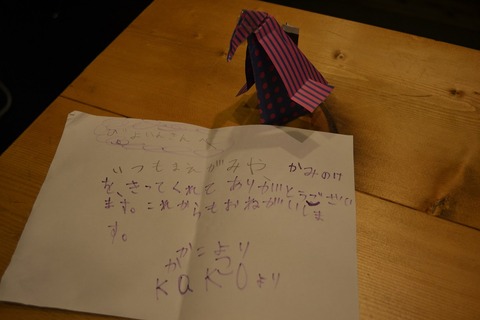 いつもまえがみや かみのけ
を、きってくれてありがとうござい
ます。これからもおねがいしま
す。
かこより
KaKOより